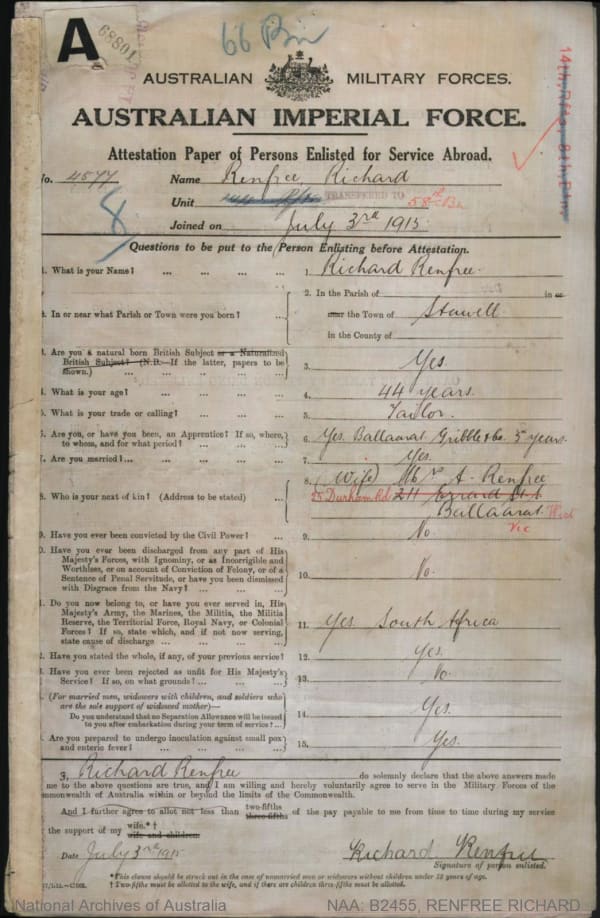 A
10889
66 Bn
AUSTRALIAN MILITARY FORCES.
AUSTRALIAN IMPERIAL FORCE.
Attestation Paper of Persons Enlisted for Service Abroad.
14th Rfts. 8th Btn
No. 4577 Name Renfree Richard
Unit TRANSFERED TO 58th Bn
8
Joined on July 3rd 1915
Questions to be put to the Person Enlisting before Attestation.
1. What is your Name? ... ... ... ... 1. Richard Renfree.
2. In the Parish of in or
2. In or near what Parish or Town were you born? ... near the Town of Stawell
in the County of
3. Are you a natural born British Subject or a Naturalized
British Subject? (N.B.—If the latter, papers to be
shown.) ... ... ... ... 3. Yes.
4. What is your age? ... ... ... ... 4. 44 years.
5. What is your trade or calling? ... ... ... 5. Tailor.
6. Are you, or have you been, an Apprentice? If so, where,
to whom, and for what period? ... ... ... 6. Yes. Ballaarat Gribble & Co. 5 years.
7. Are you married? ... ... ... ... 7. Yes.
8. (Wife) Mrs A. Renfree
8. Who is your next of kin? (Address to be stated) ... 25 Durham Rd 211 Errard St S
Ballaarat Vic
9. Have you ever been convicted by the Civil Power? ... 9. No.
10. Have you ever been discharged from any part of His
Majesty's Forces, with Ignominy, or as Incorrigible and
Worthless, or on account of Conviction of Felony, or of a
Sentence of Penal Servitude, or have you been dismissed
with Disgrace from the Navy? ... ... ... 10. No.
11. Do you now belong to, or have you ever served in, His
Majesty's Army, the Marines, the Militia, the Militia
Reserve, the Territorial Force, Royal Navy, or Colonial
Forces? If so, state which, and if not now serving,
state cause of discharge ... ... ... 11. Yes South Africa
12. Have you stated the whole, if any, of your previous service? 12. Yes.
13. Have you ever been rejected as unfit for His Majesty's
Service? If so, on what grounds? ... ... ... 13. No.
(For married men, widowers with children, and soldiers who
are the sole support of widowed mother)—
Do you understand that no Separation Allowance will be issued
to you after embarkation during your term of service? ... 14. Yes.
Are you prepared to undergo inoculation against small pox
and enteric fever? ... ... ... ... 15. Yes.
I, Richard Renfree do solemnly declare that the above answers made
me to the above questions are true, and I am willing and hereby voluntarily agree to serve in the Military Forces of the
mmonwealth of Australia within or beyond the limits of the Commonwealth.
And I further agree to allot not less than two-fifths three-fifths of the pay payable to me from time to time during my service
the support of my wife.*† wife and children.
Date July 3rd 1915 Richard Renfree
Signature of person enlisted.
*This clause should be struck out in the case of unmarried men or widowers without children under 18 years of age.
†Two-fifths must be allotted to the wife, and if there are children three-fifths must be allotted.
National Archives of Australia NAA: B2455, RENFREE RICHARD